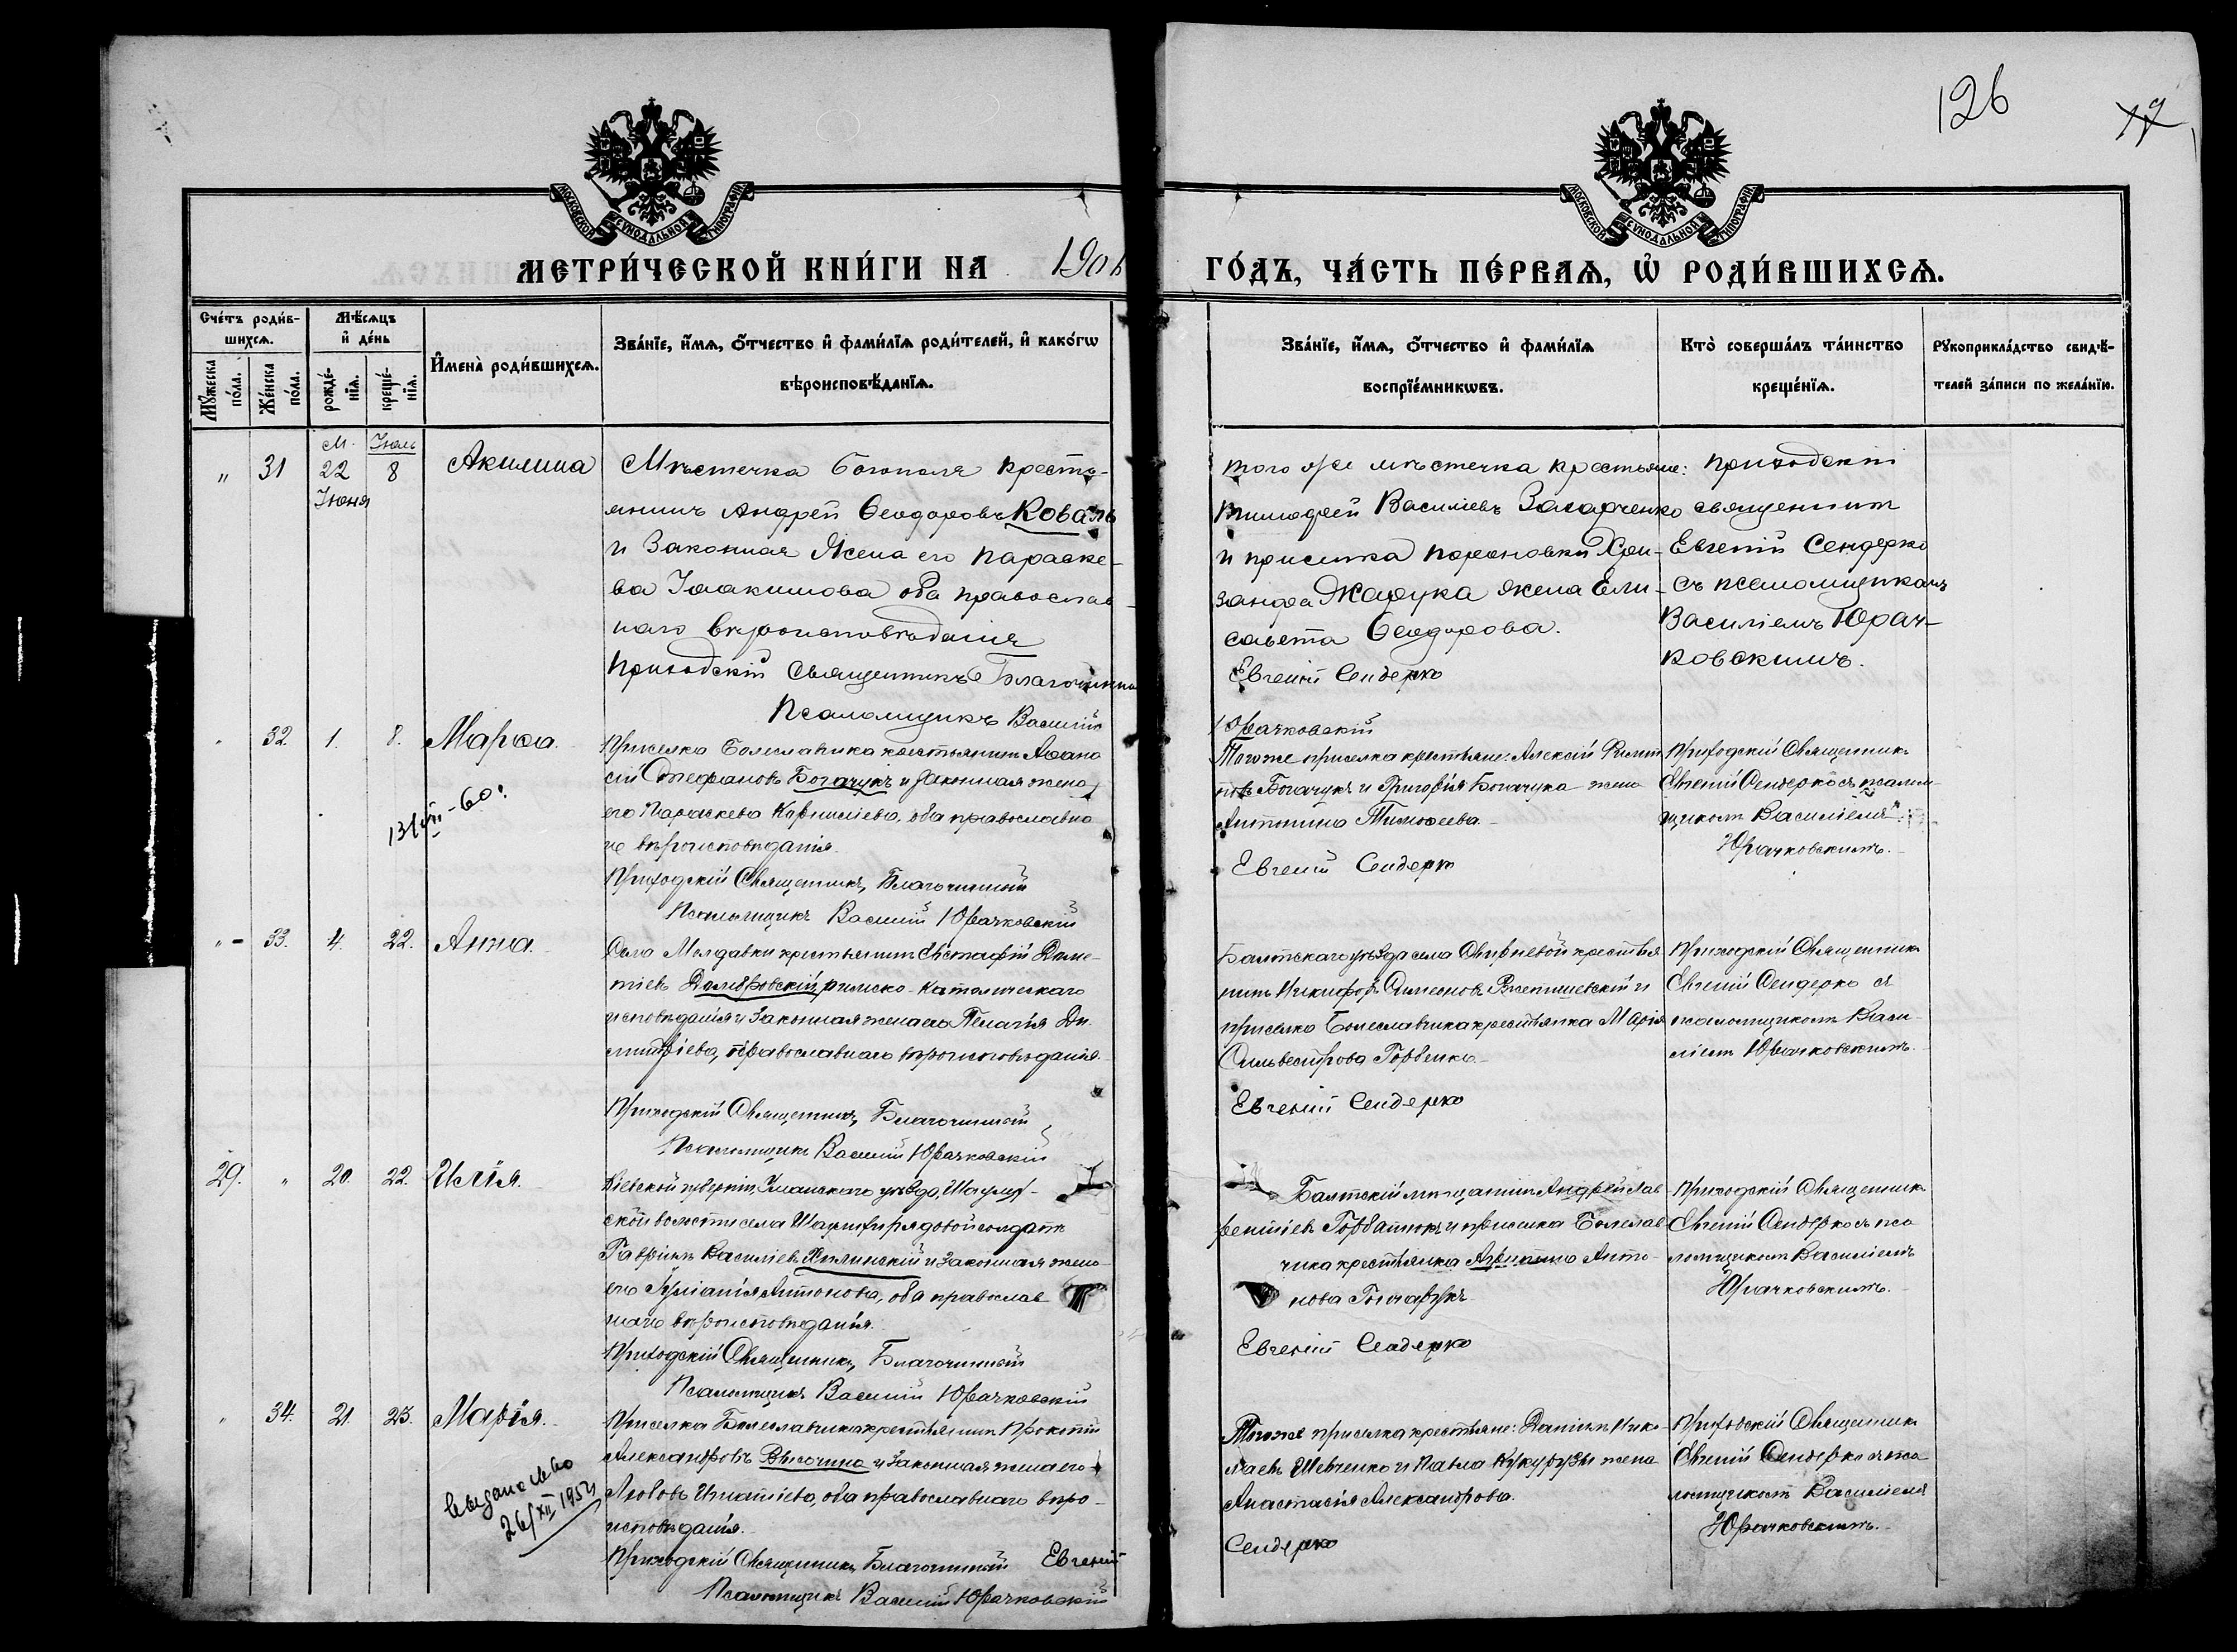 126
МОСКОВСКОЙ СѴНОДАЛЬНОЙ ТИПОГРАФІИ
МОСКОВСКОЙ СѴНОДАЛЬНОЙ ТИПОГРАФІИ
МЕТРИ́ЧЕСКОЙ КНИ́ГИ НА 190
ГО́ДЪ, ЧА́СТЬ ПЕ́РВАѦ, Ѡ҆ РОДИ́ВШИХСѦ.
Сче́тъ роди́в-
шихсѧ.
Мꙋ́жеска по́ла.
Же́нска по́ла.
Мѣ́сѧцъ
и҆ де́нь
рожде́-
нїѧ.
креще́-
нїѧ.
И҆мена̀ роди́вшихсѧ.
Зва́нїе, и҆́мѧ, ѻ҆́тчество и҆ фами́лїѧ роди́телей, и҆ како́гѡ
вѣроисповѣ́данїѧ.
Зва́нїе, и҆́мѧ, ѻ҆́тчество и҆ фами́лїѧ
воспрїе́мникѡвъ.
Кто̀ соверша́лъ та́инство
креще́нїѧ.
Рꙋкоприкла́дство свидѣ́-
телей за́писи по жела́нїю.
" 31 М. 22 Июня Июль 8 Акилина
Мѣстечка Богополя кресть-
янинъ Андрей Ѳеодоровъ Коваль
и законная жена его Параске-
ва Іоакимова оба православ-
наго вѣроисповѣданія
Приходскій Священникъ Благочинный
Псаломщикъ Василій
того же мѣстечка крестьяне:
Тимофей Василіевъ Захарченко
и приселка
Жарука жена Ели-
савета Ѳеодорова.
Евгеній Сендерко
Юрачковскій
приходскій
священник
Евгеній Сендерко
съ псаломщикомъ
Василіемъ Юрач-
ковскимъ.
" 32. 1. 8. Марѳа.
Приселка Болеславчика крестьянинъ Аѳана
сій Стефановъ Богачукъ и законная жена
его Параскева Корниліева, оба православна
го вѣроисповѣданія.
Приходскій Священникъ, Благочинный
Псаломщикъ Василій Юрачковскій
13/VII-60г.
Того же приселка крестьяне: Алексій Филип
повъ Богачукъ и Григорія Богачука жена
Антонина Тимоѳеева.
Евгеній Сендерко
Приходскій Священник
Евгеній Сендерко съ псалом-
щиком Василіемъ
Юрачковскимъ.
" 33. 4. 22. Анна.
Села Молдавки крестьянинъ Евстафій Доме-
тіевъ Домбровскій, римско-католическаго
исповѣданія и законная жена его Пелагія Ди
митріева, православнаго вѣроисповѣданія.
Приходскій Священникъ, Благочинный
Псаломщикъ Василій Юрачковскій
Балтскаго уѣзда села крестья
нинъ Никифоръ Симеоновъ и
приселка Болеславчика крестьянка Марія
Сильвестрова Горбенко
Евгеній Сендерко
Приходскій Священник
Евгеній Сендерко съ
псаломщиком Васи-
ліем Юрачковскимъ.
29. " 20. 22. Илія.
Кіевской губерніи, Уманскаго уѣзда,
ской волости села рядовой солдатъ
Гавріилъ Василіевъ и законная жена
его Іуліанія Антонова, оба православ
наго вѣроисповѣданія.
Приходскій Священникъ, Благочинный
Псаломщикъ Василій Юрачковскій
Балтскій мѣщанинъ Андрей Лав
рентіевъ Горбатюкъ и приселка Болеслав
чика крестьянка Анто-
нова Гончарукъ
Евгеній Сендерко
Приходскій Священник
Евгеній Сендерко съ пса
ломщиком Василіемъ
Юрачковскимъ.
" 34. 21. 23. Марія.
Приселка Болеславчика крестьянинъ Прокопій
Александровъ Височина и законная жена его
Любовь Игнатіева, оба православнаго вѣро-
исповѣданія.
Приходскій Священникъ, Благочинный Евгеній
Псаломщикъ Василій Юрачковскій
выдано св-во
26/XII 1952
Того же приселка крестьяне: Даніилъ Нико
лаевъ Шевченко и Павла Кукурузы жена
Анастасія Александрова.
Сендерко
Приходскій Священник
Евгеній Сендерко съ пса
ломщиком Василіемъ
Юрачковскимъ.